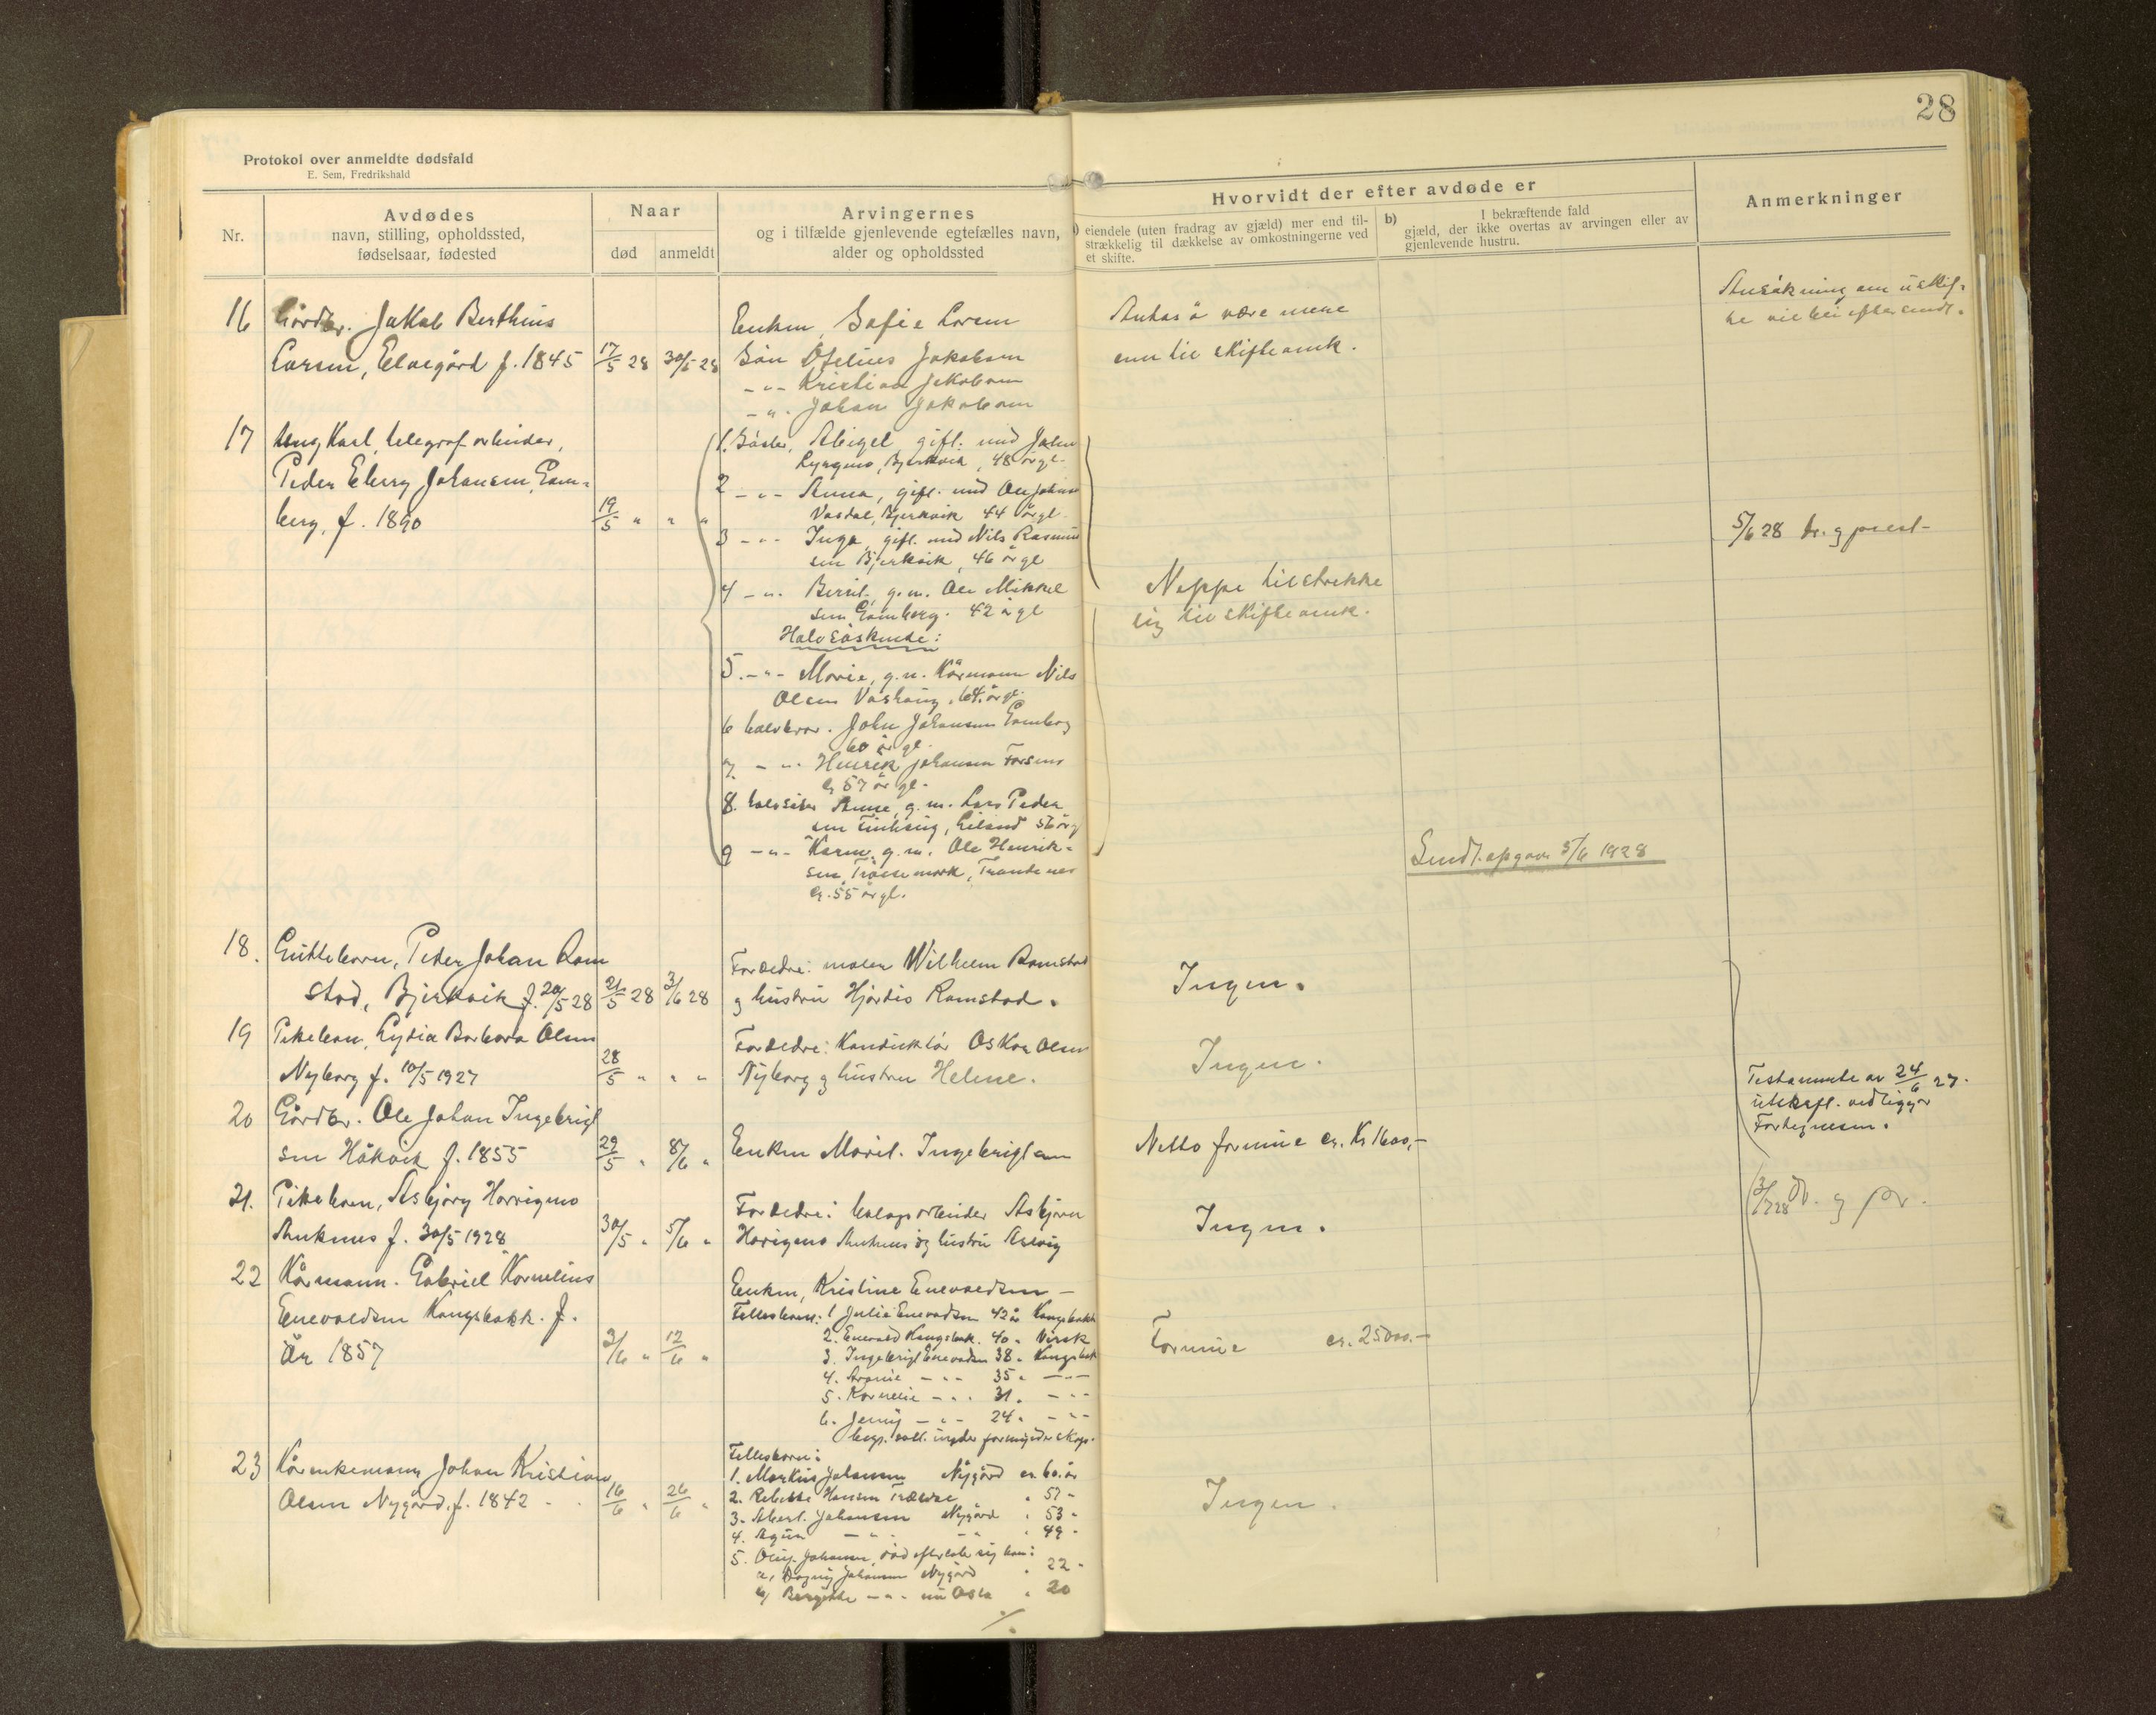 28
Protokol over anmeldte dødsfald
E. Sem, Fredrikshald
Nr.
Avdødes
navn, stilling, opholdssted,
fødselsaar, fødested
Naar
død
anmeldt
Arvingernes
og i tilfælde gjenlevende egtefælles navn,
alder og opholdssted
Hvorvidt der efter avdøde er
eiendele (uten fradrag av gjæld) mer end til-
strækkelig til dækkelse av omkostningerne ved
et skifte.
b)
I bekræftende fald
gjæld, der ikke overtas av arvingen eller av
gjenlevende hustru.
Anmerkninger
16
Gårdbr. Jakob Berthius
Larsen, Elvegård f. 1845
17/5 28
30/5 28
Enken, Sofie Larsen
Søn Ofelius Jakobsen
-"- Kristian Jakobsen
-"- Johan Jakobsen
Antas å være mere
enn til skifteomk.
Ansøkning om uskif-
te vil bli eftersendt.
17
Ung Karl, telegrafarbeider,
Peder Johansen, Gam-
berg, f. 1890
19/5 " " "
1. Søster, Abigel, gift. med John
Bjerkvik, 48 år gl.
2 -"- Anna, gift. med Ole Johan
Vasdal, Bjerkvik 44 år gl.
3 -"- Inga, gift. med Nils Rasmus
sen Bjerkvik, 46 år gl
4 -"- Berit, g.m. Ole Mikkel
sen Gamberg. 42 år gl
Halvsøskende:
5. -"- Marie, g.m. Kårmann Nils
Olsen Vashaug, 64 år gl.
6 halvbror. John Johansen Gamberg
60 år gl.
7. -"- Henrik Johansen
57 år gl.
8. halvsøster Anne, g.m. Lars Peder
sen
9 -"- Karen, g.m. Ole Henrik-
sen, Trondenes
55 år gl.
Neppe tilstrekke
lig til skifteomk.
Sendt opgave 5/6 1928
5/6 28 dr. og prest
18.
Guttebarn, Peder Johan Ram
stad, Bjerkvik f. 20/5 28
21/5 28
3/6 28
Foreldre: maler Wilhelm Ramstad
og hustru Hjørdis Ramstad.
Ingen.
19
Pikebarn, Lydia Barbara Olsen
Nyborg f. 10/5 1927
28/5 " " "
Foreldre: Konduktør Oskar Olsen
Nyborg og hustru Helene.
Ingen.
20
Gårdbr. Ole Johan Ingebrigt
sen Håkvik f. 1855
29/5 "
8/6 "
Enken Marit. Ingebrigtsen
Netto formue ca. Kr 1600,-
Testamente av 24/6 27.
utskrft. vedligger
Fortegnelsen.
21.
Pikebarn, Asbjørg Horrigmo
Ankenes f. 30/5 1928
30/5 "
5/6 "
Foreldre: malmarbeider Asbjørn
Horigmo Ankenes og hustru Aslaug
Ingen.
3/7 28 dr. og pr.
22
Kårmann. Gabriel Kornelius
Enevoldsen Kongsbakk. f.
År 1857
3/6 "
12/6 "
Enken, Kristine Enevoldsen -
Fellesbarn: 1 Julie Enevoldsen 42 år Kongsbakk
2. Enevald Kongsbak. 40 "
3. Ingebrigt Enevoldsen 38 " Kongsbak
4. -"- 35 " -"-
5. Kornelie -"- 31 " -"-
6. Jenny -"- 24 " -"-
Formue ca. 25000.-
23
Kårenkemann Johan Kristian
Olsen Nygård, f. 1842
16/6 "
26/6 "
Fellesbarn:
1. Markus Johansen Nygård ca. 60 år
2. Rebekka Hansen " 57 -
3. Albert. Johansen Nygård " 53 -
4. Agnes -"- -"- " 49 -
5. Johansen, død efterlatt sig barn:
a, Dagny Johansen Nygård " 22 -
b/ -"- nu Oslo " 20
Ingen.